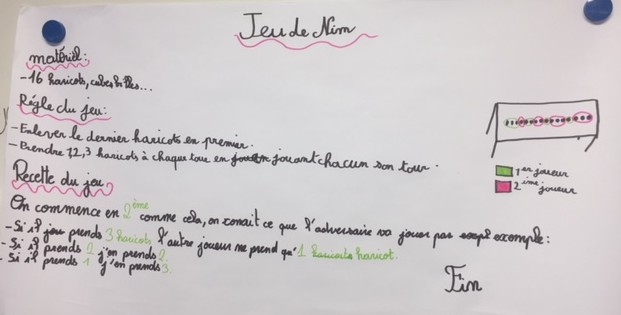 Jeu de Nim
matériel:
-16 haricots, cubes billes...
Régle du jeu:
-Enlever le dernier haricots en premier.
-Prendre 1,2,3 haricots à chaque tour en jouant chacun son tour.
1er joueur
2ème joueur
Recette du jeu
On commence en 2ème comme cela, on connait ce que l'adversaire va jouer par exemple:
-Si il prends 3 haricots l'autre joueur ne prend qu'1 haricot.
-Si il prends 2 j'en prends 2.
-Si il prends 1 j'en prends 3.
Fin